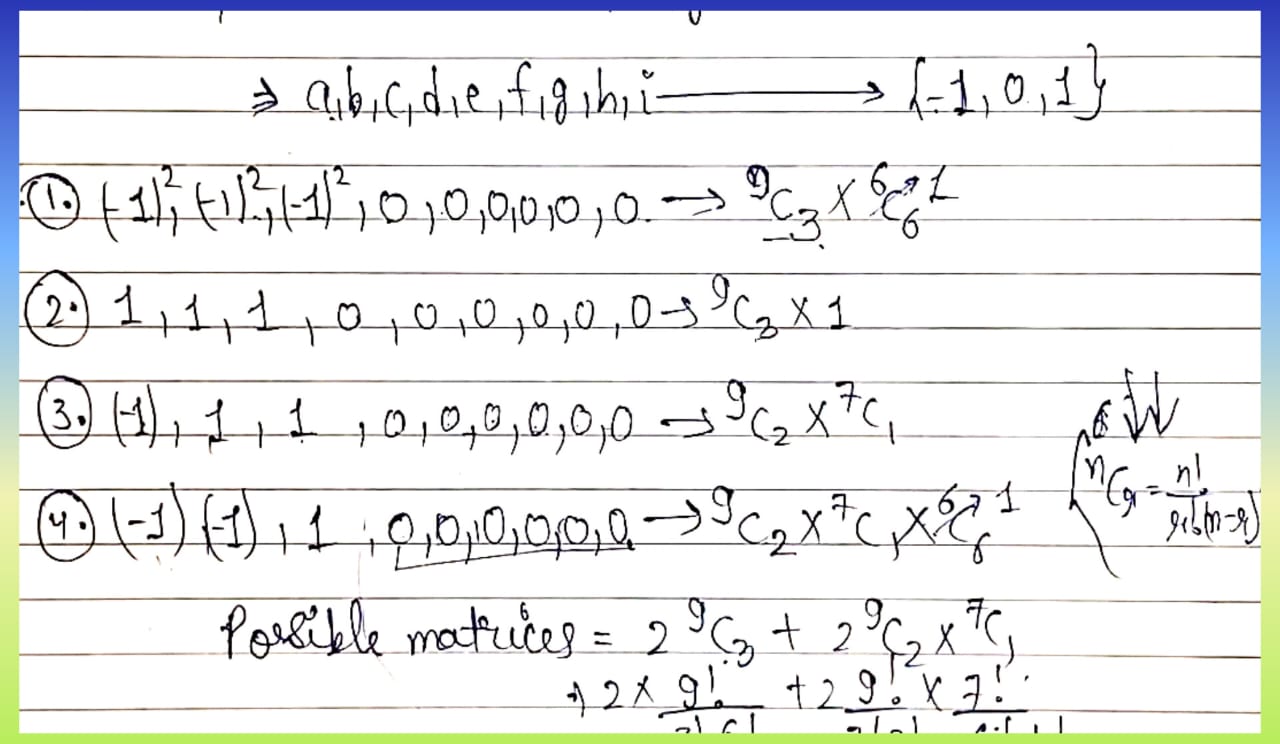 ⇒ a,b,c,d,e,f,g,h,i ⟶ {-1,0,1}
①. (-1)²,(-1)²,(-1)²,0,0,0,0,0,0. → ⁹C₃ × ⁶C₆↗1
②. 1,1,1,0,0,0,0,0,0 → ⁹C₃ × 1
③. (-1),1,1,0,0,0,0,0,0 → ⁹C₂ × ⁷C₁
ⁿCᵣ = n!/r!(n-r)
④. (-1)(-1),1,0,0,0,0,0,0. → ⁹C₂ × ⁷C₁ × ⁶C₆↗1
Possible matrices = 2 ⁹C₃ + 2 ⁹C₂ × ⁷C₁
⇒ 2 × 9! + 2 9! × 7!